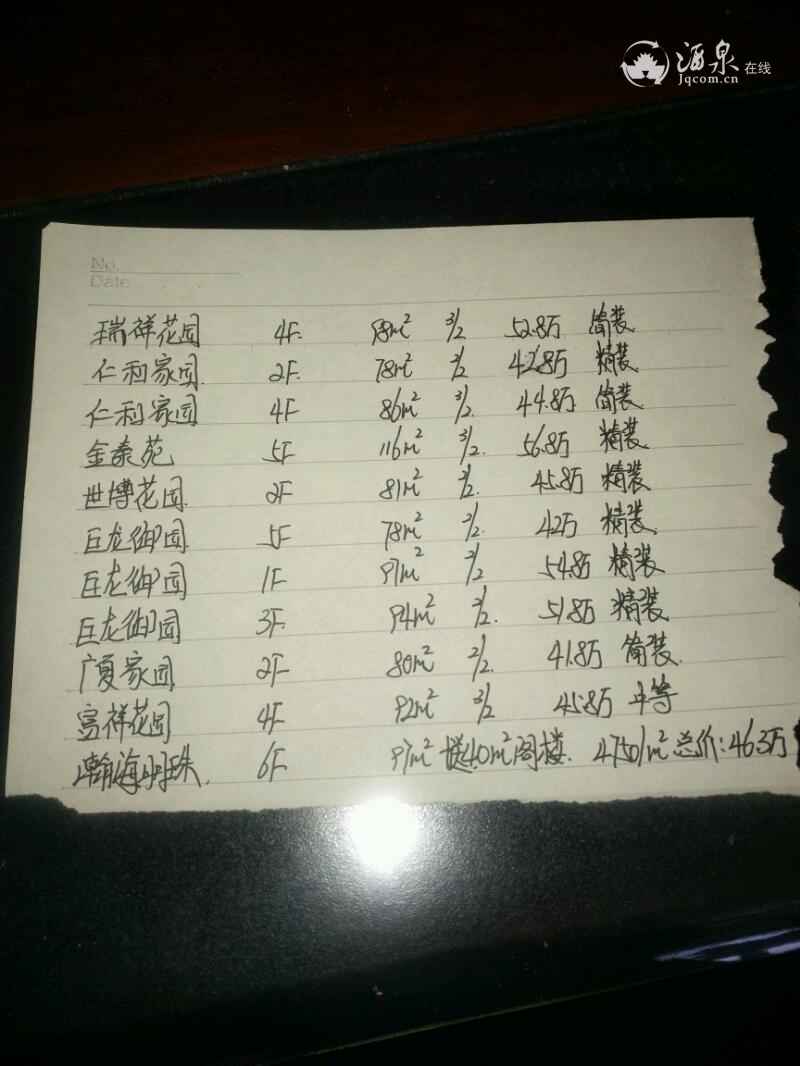 酒泉在线
Jqcom.cn
No.
Date
瑞祥花园 4F. 98m² 3/2 52.8万 简装
仁利家园. 2F. 78m² 3/2 42.8万 精装
仁利家园 4F 86m² 3/2. 44.8万 简装
金泰苑 5F 116m² 3/2. 56.8万 精装
世博花园 2F 81m² 2/2. 45.8万 精装
巨龙御园 5F 78m² 2/2. 42万 精装
巨龙御园 1F 97m² 3/2 54.8万 精装
巨龙御园 3F. 94m² 3/2. 51.8万 精装
广厦家园 2F 80m² 2/2. 41.8万 简装.
富祥花园 4F 92m² 3/2 45.8万
瀚海明珠. 6F 97m² 送40m²阁楼. 4750/m² 总价:46.3万